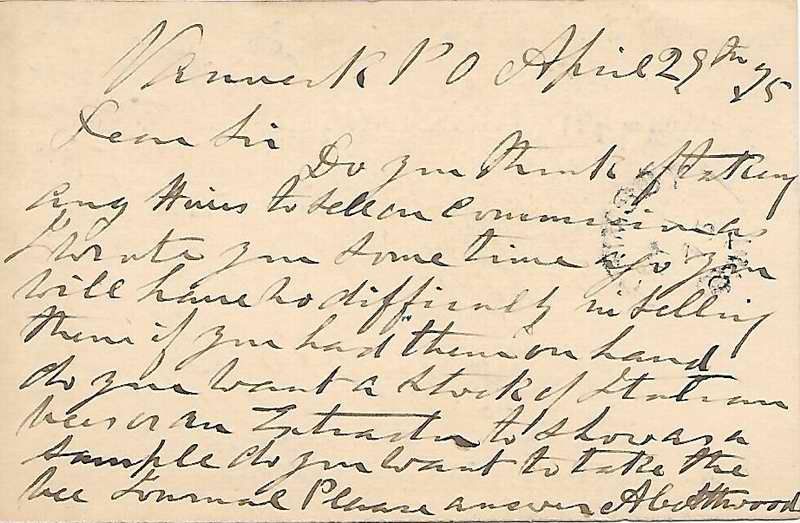 Vanneck P O April 29th 75
Dear Sir
Do you think of taking
any Hives to sell on Commission as
I wrote you some time ago you
will have no difficulty in selling
them if you had them on hand
do you want a Stock of Italian
bees or an Extractor to show as a
sample do you want to take the
bee Journal Please answer